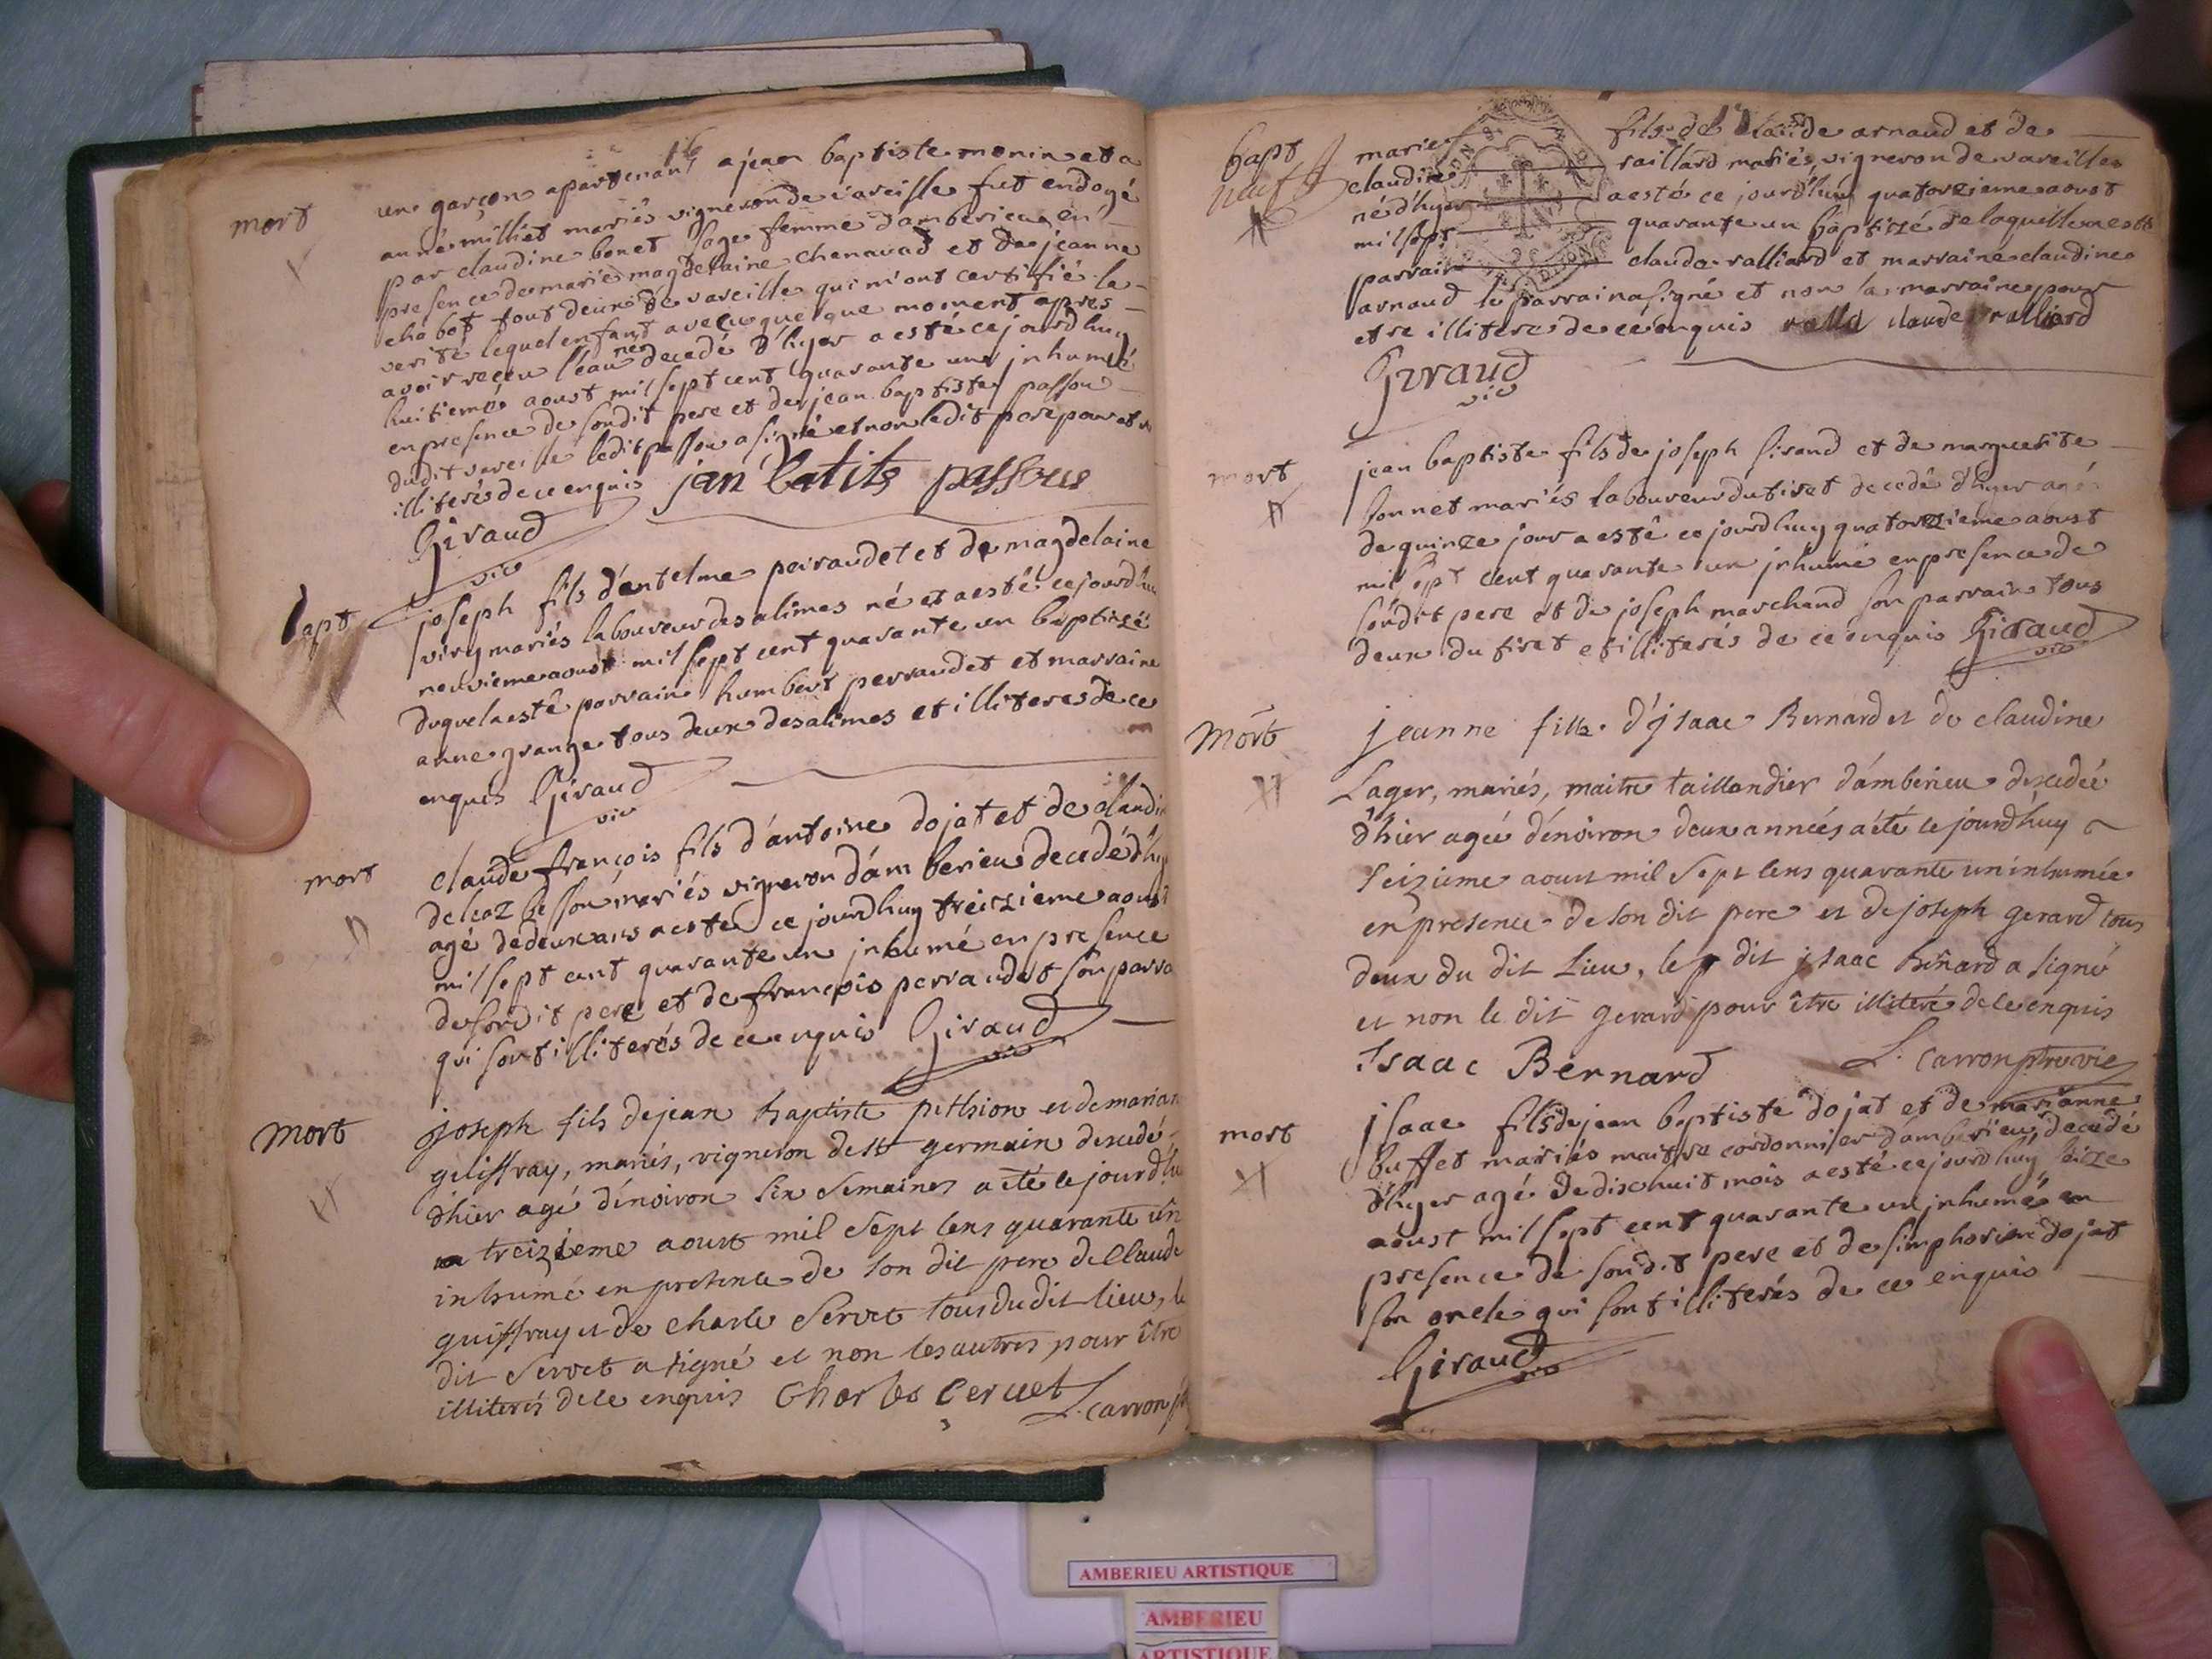 16
mort
un garçon apartenant a jean baptiste monin et a
anne milliet mariés vigneron de vareille fut endoyé
par claudine bonet sage femme d'amberieu en
presence de marie magdelaine chenavad et de jeanne
chabot tout deux de vareille qui m'ont certifié la
verité lequel enfant avecu quelque moment apres
avoir receu l'eau né decedé d'hyer a esté ce jourd huy
huitieme aoust mil sept cent quarante un jnhumé
en presence de sondit pere et de jean baptiste passou
dudit vareille ledit passou a signé et non ledit pere pour et
illiterés de ce enquis jan batits passou
Giraud
vic
bapt
joseph fils d'entelme peiraudet et de magdelaine
viry mariés laboureur des alimes né et a esté ce jourd hu
neuvieme aoust mil sept cent quarante un baptizé
duquel a esté parrain humbert perraudet et marraine
anne grange tous deux des alimes et illiteres de ce
enquis Giraud
vic
mort
claude françois fils d'antoine dojat et de claudi
mariés vigneron d'am berieu decedé d'hy
agé de deux ans a esté ce jourd huy treizieme aoust
mil sept cent quarante un jnhumé en presence
de sondit pere et de françois perraudet son parra
qui sont illiterés de ce enquis Giraud
vic
mort
joseph fils de jean baptiste pethion et de marian
guiffray, mariés, vigneron de st germain decedé
d'hier agé d'environ six semaines a été ce jourd'hu
treizieme aoust mil sept cens quarante un
inhumé en presence de son dit pere de Claude
guiffray et de charle Servet tous du dit lieu, le
dit Servet a signé et non les autres pour être
illiterés de ce enquis Charles Cervet
L. carron
bapt
neuf
marie fils de Claude arnaud et de
claudine raillard mariés vigneron de vareilles
né d'hyer a esté ce jourd'huy quatorzieme aoust
mil sept quarante un baptizé de laquelle
parrain claude ralliard et marraine claudine
arnaud le parrain a signé et non la marraine pour
etre illitere de ce enquis claude ralliard
Giraud
vic
mort
jean baptiste fils de joseph sirand et de marguerite
bonnet mariés laboureur du tiret decedé d'hyer agé
de quinze jour a esté ce jourd huy quatorzieme aoust
mil sept cent quarante un jnhumé en presence de
sondit pere et de joseph marchand son parrain tous
deux du tiret et illiterés de ce enquis Giraud
vic
Mort
jeanne fille d'jsaac Bernard et de claudine
Lager, mariés, maitre taillandier d'ambérieu decedée
d'hier agée d'environ deux années a été ce jourd'huy
seizieme aoust mil sept cens quarante un inhumée
en presence de son dit pere et de joseph gerard tous
deux du dit Lieu, le dit jsaac Bernard a signé
et non le dit gerard pour être illiteré de ce enquis
Isaac Bernard L. carron ptre vic
mort
jsaac fils de jean baptiste dojat et de marianne
buffet mariés maitre cordonnier d'amberieu decedé
d'hyer agé de dixhuit mois a esté ce jourd huy seize
aoust mil sept cent quarante un jnhumé en
presence de sondit pere et de simphorien dojat
son oncle qui sont illiterés de ce enquis
Giraud
vic
AMBERIEU ARTISTIQUE
AMBERIEU
ARTISTIQUE